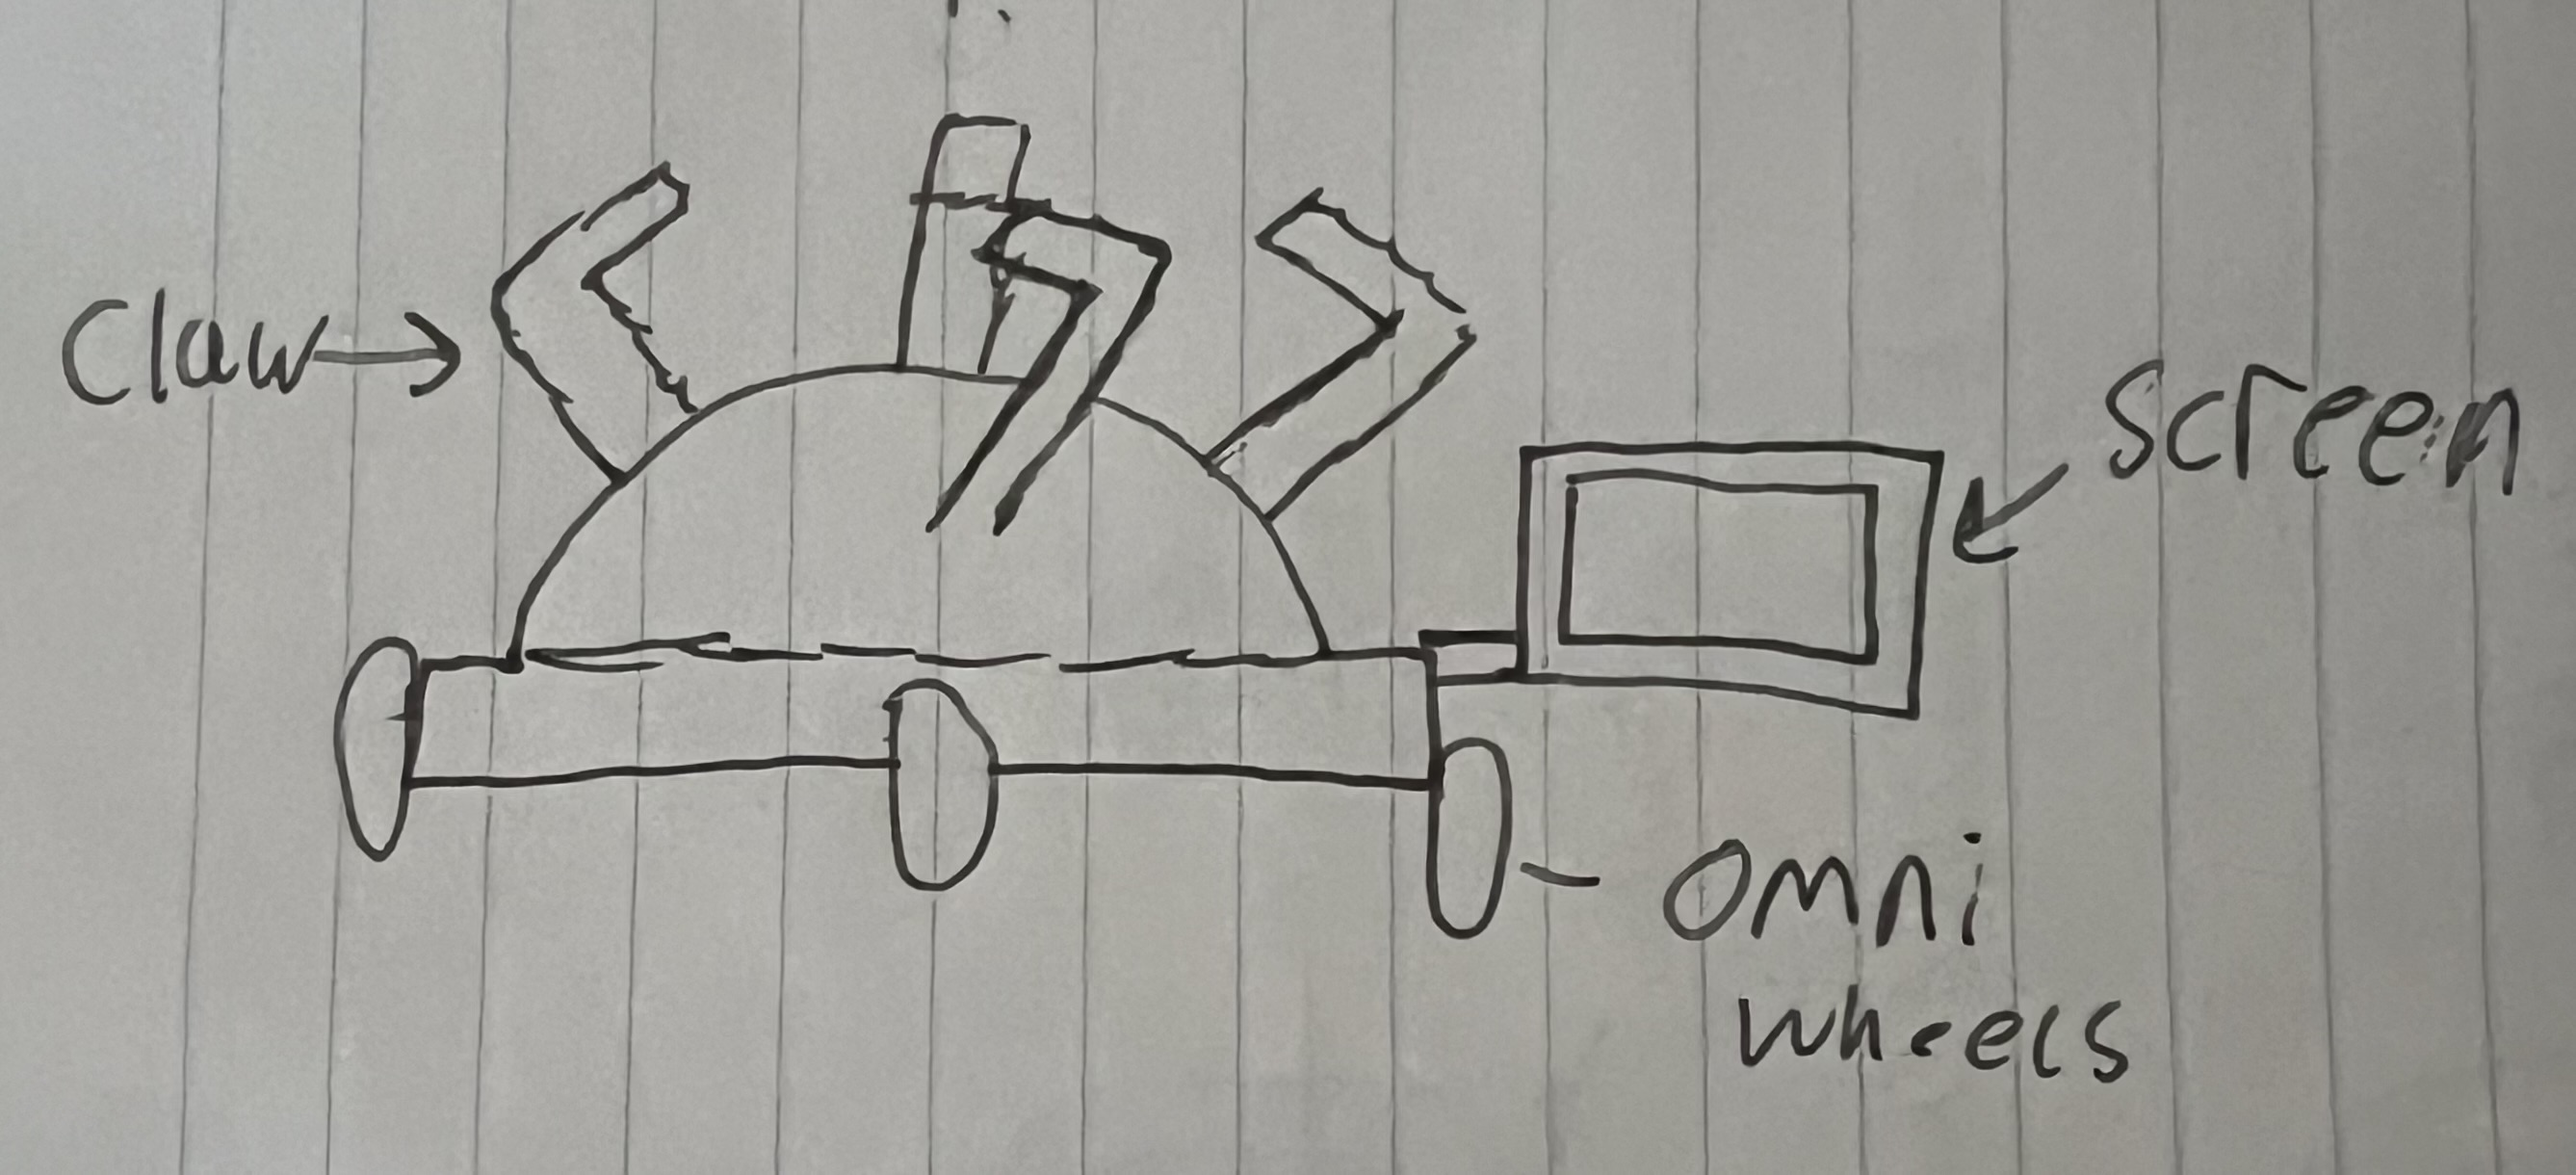 Claw
Screen
Omni
wheels